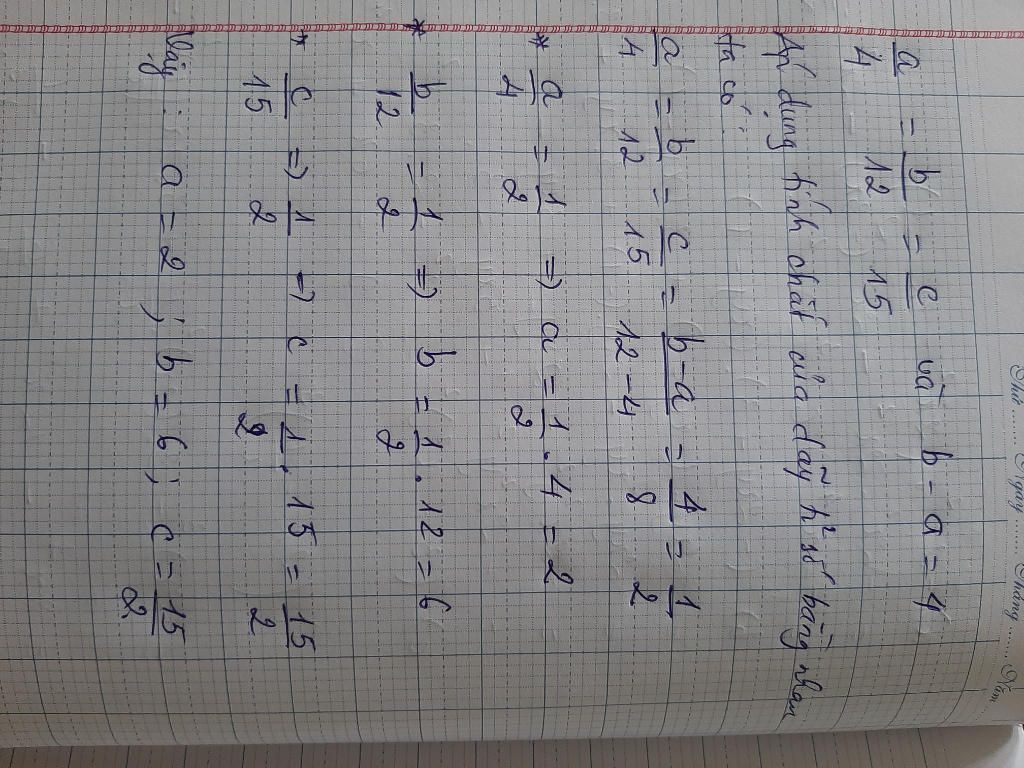 Thứ ........ Ngày ........ Tháng ...... Năm
a/4 = b/12 = c/15 và b - a = 4
Áp dụng tính chất của dãy tỉ số bằng nhau
ta có:
a/4 = b/12 = c/15 = b-a/12-4 = 4/8 = 1/2
* a/4 = 1/2 => a = 1/2 . 4 = 2
* b/12 = 1/2 => b = 1/2 . 12 = 6
* c/15 => 1/2 => c = 1/2 . 15 = 15/2
Vậy : a = 2 ; b = 6 ; c = 15/2